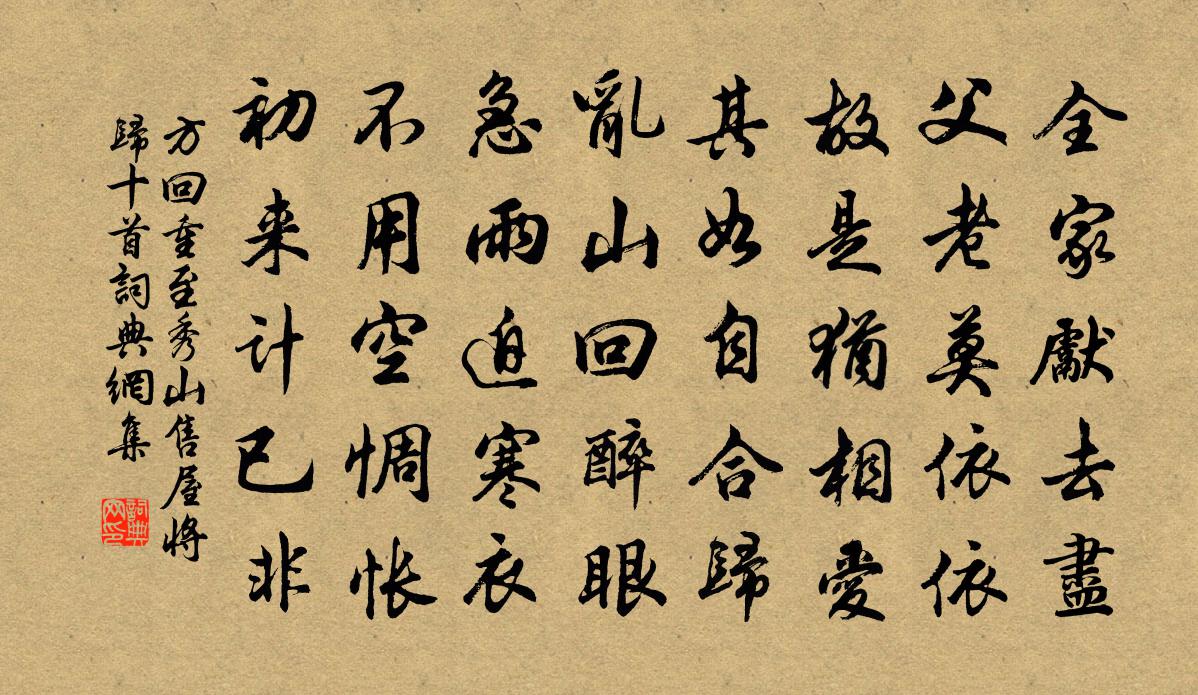 全家獻去盡
父老莫依依
故是猶相愛
其如自合歸
亂山回醉眼
急雨迫寒衣
不用空惆怅
初来计已非
方回重至秀山售屋將
歸十首詞典網集
詞典网印